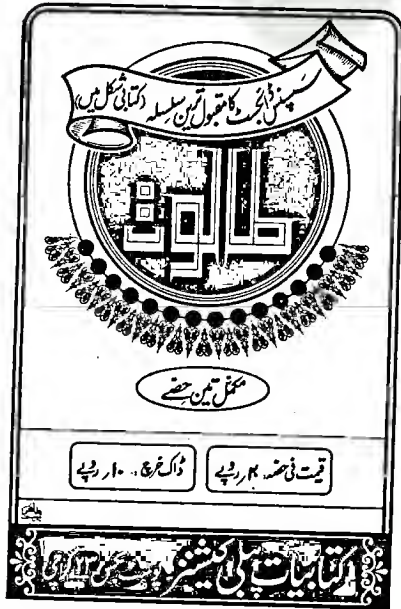 سسپنس ڈائجسٹ کا مقبول ترین سلسلہ (کتابی شکل میں)
طالوت
مکمل تین حصے
قیمت فی حصہ، روپے
ڈاک خرچ، ۱۰ روپے
کتابیات پبلی کیشنز پوسٹ بکس ۲۳ کراچی